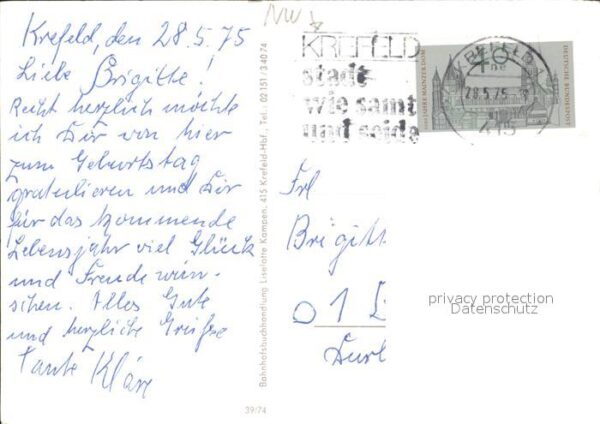 Krefeld, den 28.5.75
Liebe Brigitte!
Recht herzlich möchte
ich Dir von hier
zum Geburtstag
gratulieren und Dir
für das kommende
Lebensjahr viel Glück
und Freude wün-
schen. Alles Gute
und herzliche Grüße
Tante Kläre
39/74
Bahnhofsbuchhandlung Liselotte Kampen, 415 Krefeld-Hbf. Tel.: 02151/34074
NW
KREFELD
stadt
wie samt
und seide
KREFELD
28.5.75
415
40
1000 JAHRE MAINZER DOM
DEUTSCHE BUNDESPOST
Frl
Brigitt
privacy protection
Datenschutz